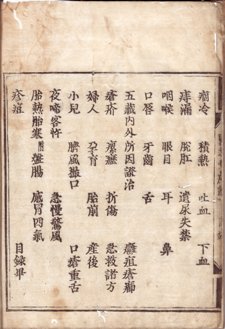 痼冷 積熱 吐血 下血
痔漏 脫肛 遺尿失禁
咽喉 眼目 耳 鼻
口唇 牙齒 舌
五藏內外所因證治
瘡疥 折傷 急救諸方
婦人 孕育 胎前 產後
小兒 臍風撮口 口瘡重舌
夜啼客忤 急慢驚風
胎熱胎寒 盤腸 感冒四氣
疹痘 目錄畢